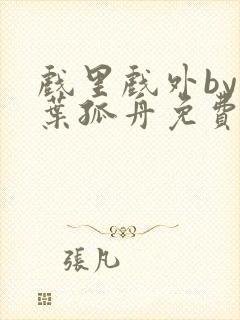 戲里戲外by
葉孤舟免費
張凡